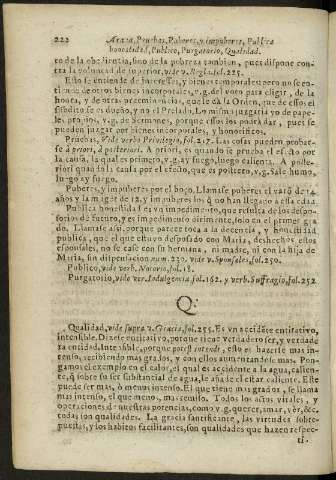 222 Prueba, Pruebas, Puberes, y impuberes, Publica
honestidad, Publico, Purgatorio, Qualidad.
to de la obediencia, sino de la pobreza tambien, pues dispone con-
tra la voluntad de su superior, vide v. Regla, fol. 225.
Esto se entiende de interesses, y bienes temporales; pero no se en-
tiende de otros bienes incorporales, v.g. del voto para eligir, de la
honra, y de otras preeminencias, que le dà la Orden, que de essos el
subdito se es dueño, y no el Prelado. Lo mismo juzgariá yo de pape-
les propios, v.g. de hermones, porque essos los podrà dar, pues se
pueden juzgar por bienes incorporales, y honorificos.
Pruebas, Vide verbo Privilegio, fol. 217. Las cosas pueden probar-
se à priori, à posteriori. A priori, es quando se prueba el efecto por
la causa, la qual es primero, v.g. ay fuego, luego calienta. A poste-
riori quando la causa por el efecto, que es postrero, v.g. Sale humo,
luego ay fuego.
Puberes, y impuberes por el hoço. Llamase puberes el varõ de 14
años y la muger de 12, y impuberes los q̃ no han llegado a essa edad.
Publica honestidad es vn impedimento, que resulta de los despo-
sorios de futuro, y es impedimento dirimente, solo en el primer gra-
do. Llamase assi, porque parece toca a la decencia, y honestidad
publica, que el que estuvo desposado con Maria, deshechos estos
esponsales, no se case con su hermana, ni madre, ni con la hija de
Maria, sin dispensacion num. 230. vide v. Sponsales, fol. 250.
Publico, vide verb. Notorio, fol. 18.
Purgatorio, vide ver. Indulgencia, fol. 162. y verb. Suffragio, fol. 252.
Q.
Qualidad, vide supra v. Gracia, fol. 255. Es vn accidẽte entitativo,
intensible. Dizese entitativo, porque tiene verdadero ser, y verdade-
ra entidad. Intensible, porque potest intendi, esto es hazerse mas in-
tenso, recibiendo mas grados, y con ellos aumentandose mas. Pon-
gamos el exemplo en el calor, el qual es accidente a la agua, calien-
te, q̃ sobre su ser substancial de agua, se añade el estar caliente. Este
puede ser mas, ò menos intenso. El que tiene mas grados, se llama
mas intenso, el que menos, mas remisso. Todos los actos vitales, y
operaciones de nuestras potencias, como v.g. querer, amar, vèr, &c.
todas son qualidades. La gracia santificante, las virtudes sobre-
puestas, y los habitos facilitantes, son qualidades que hazen respec-
ti-